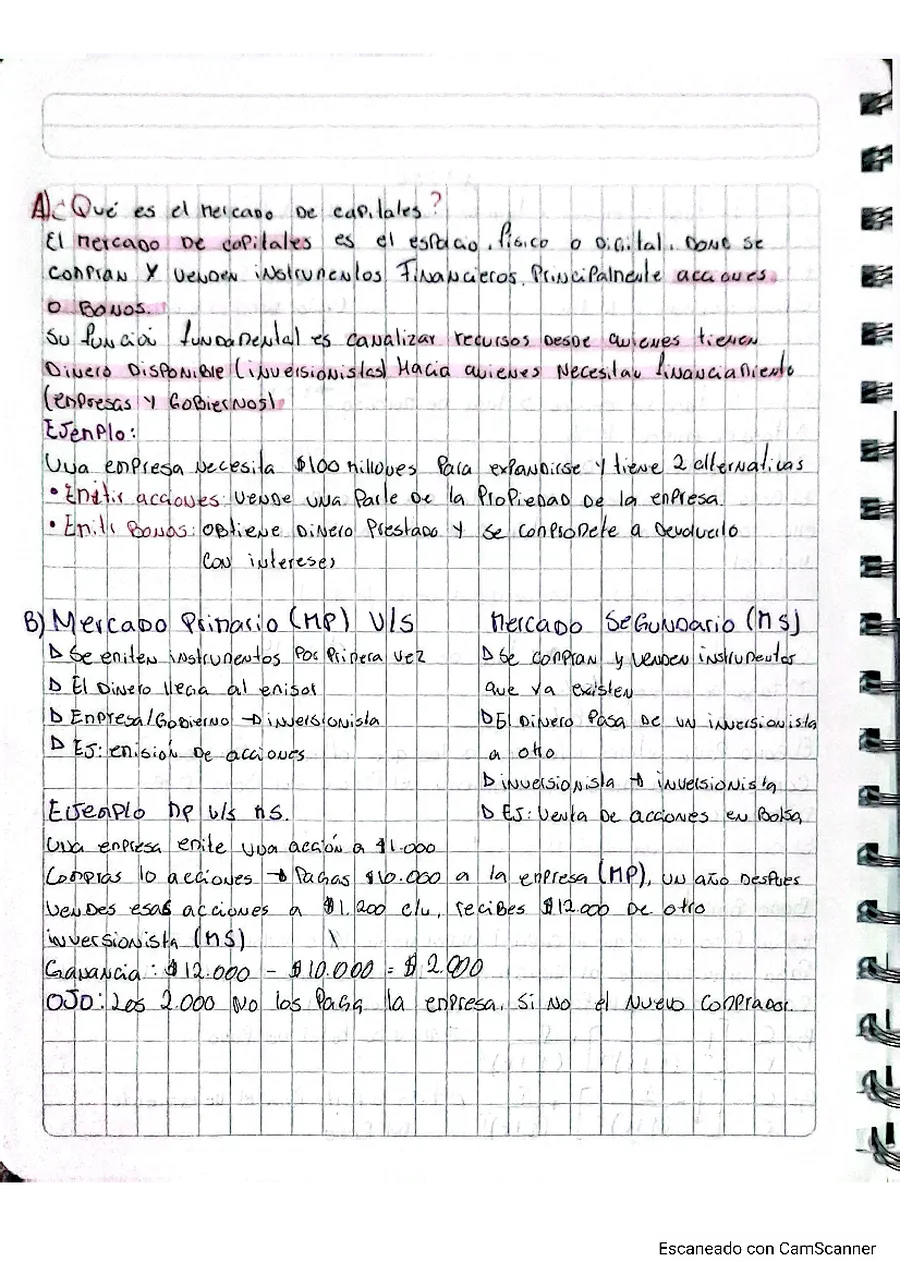 A) ¿Qué es el mercado de capitales?
El mercado de capitales es el espacio, físico o digital, donde se
compran y venden instrumentos financieros, principalmente acciones
o bonos.
Su función fundamental es canalizar recursos desde quienes tienen
dinero disponible (inversionistas) hacia quienes necesitan financiamiento
(empresas y gobiernos)
Ejemplo:
Una empresa necesita $100 millones para expandirse y tiene 2 alternativas
• Emitir acciones: vende una parte de la propiedad de la empresa.
• Emitir Bonos: obtiene dinero prestado y se compromete a devolverlo
con intereses
B) Mercado Primario (MP) V/S Mercado Segundario (MS)
▷ Se emiten instrumentos por primera vez
▷ El dinero llega al emisor
▷ Empresa/Gobierno → inversionista
▷ Ej: emisión de acciones
▷ Se compran y venden instrumentos
que ya existen
▷ El dinero pasa de un inversionista
a otro
▷ inversionista → inversionista
▷ Ej: Venta de acciones en Bolsa
Ejemplo MP v/s MS.
Una empresa emite una acción a $1.000
Compras 10 acciones → Pagas $10.000 a la empresa (MP), un año despues
vendes esas acciones a $1.200 c/u, recibes $12.000 de otro
inversionista (MS)
Ganancia: $12.000 - $10.000 = $2.000
OJO: Los 2.000 no los paga la empresa, si no el nuevo comprador.
Escaneado con CamScanner